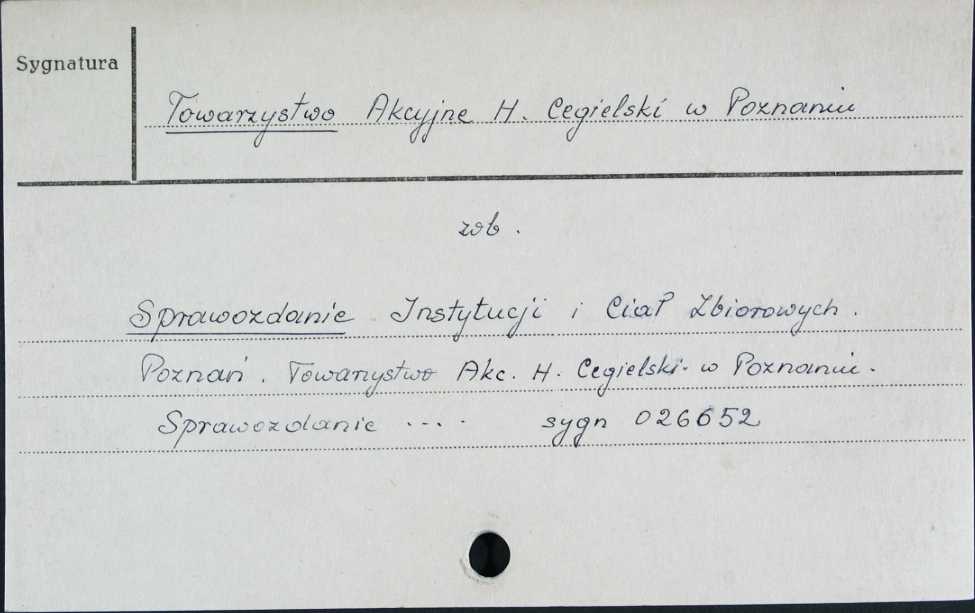 Sygnatura
Towarzystwo Akcyjne H. Cegielski w Poznaniu
zob.
Sprawozdanie Instytucji i Ciał Zbiorowych.
Poznań. Towarzystwo Akc. H. Cegielski w Poznaniu.
Sprawozdanie .... sygn 026652